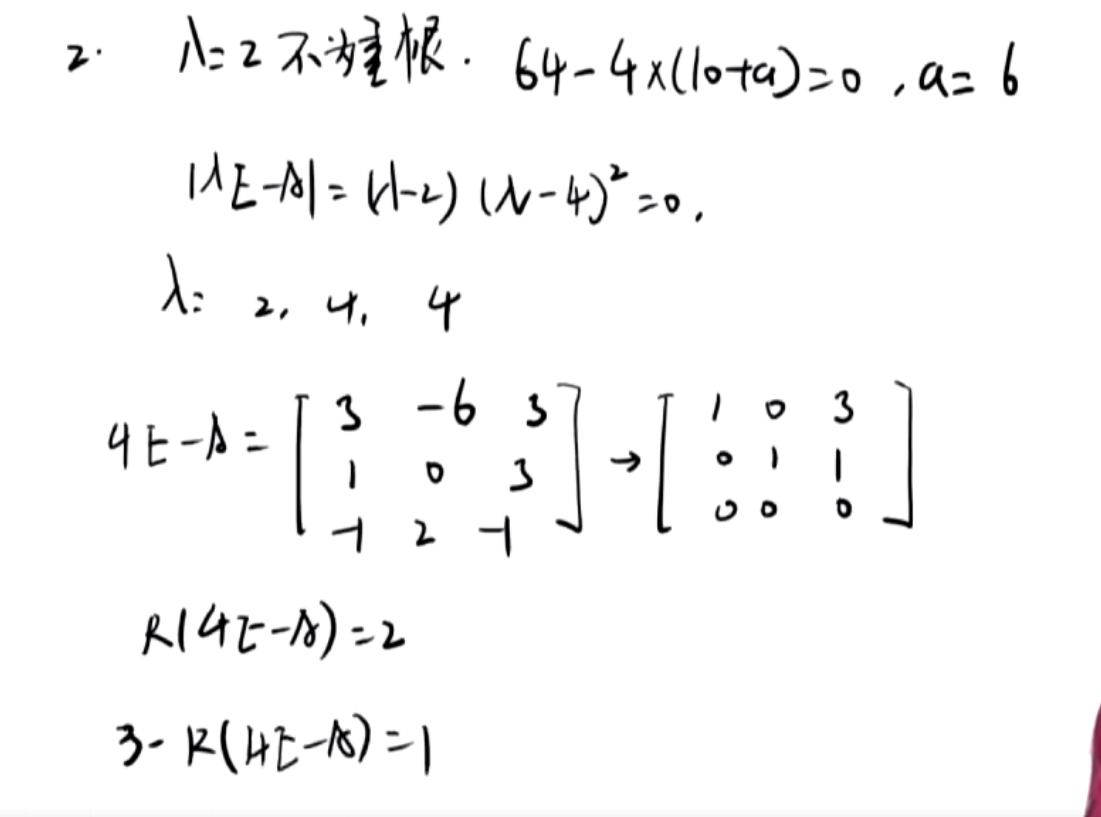 2. λ=2不为重根. 64-4×(10+a)=0, a=6
|λE-A|=(λ-2)(λ-4)²=0,
λ= 2, 4, 4
4E-A= [ 3 -6 3 ] → [ 1 0 3 ]
[ 1 0 3 ] [ 0 1 1 ]
[ -1 2 -1 ] [ 0 0 0 ]
R(4E-A)=2
3-R(4E-A)=1